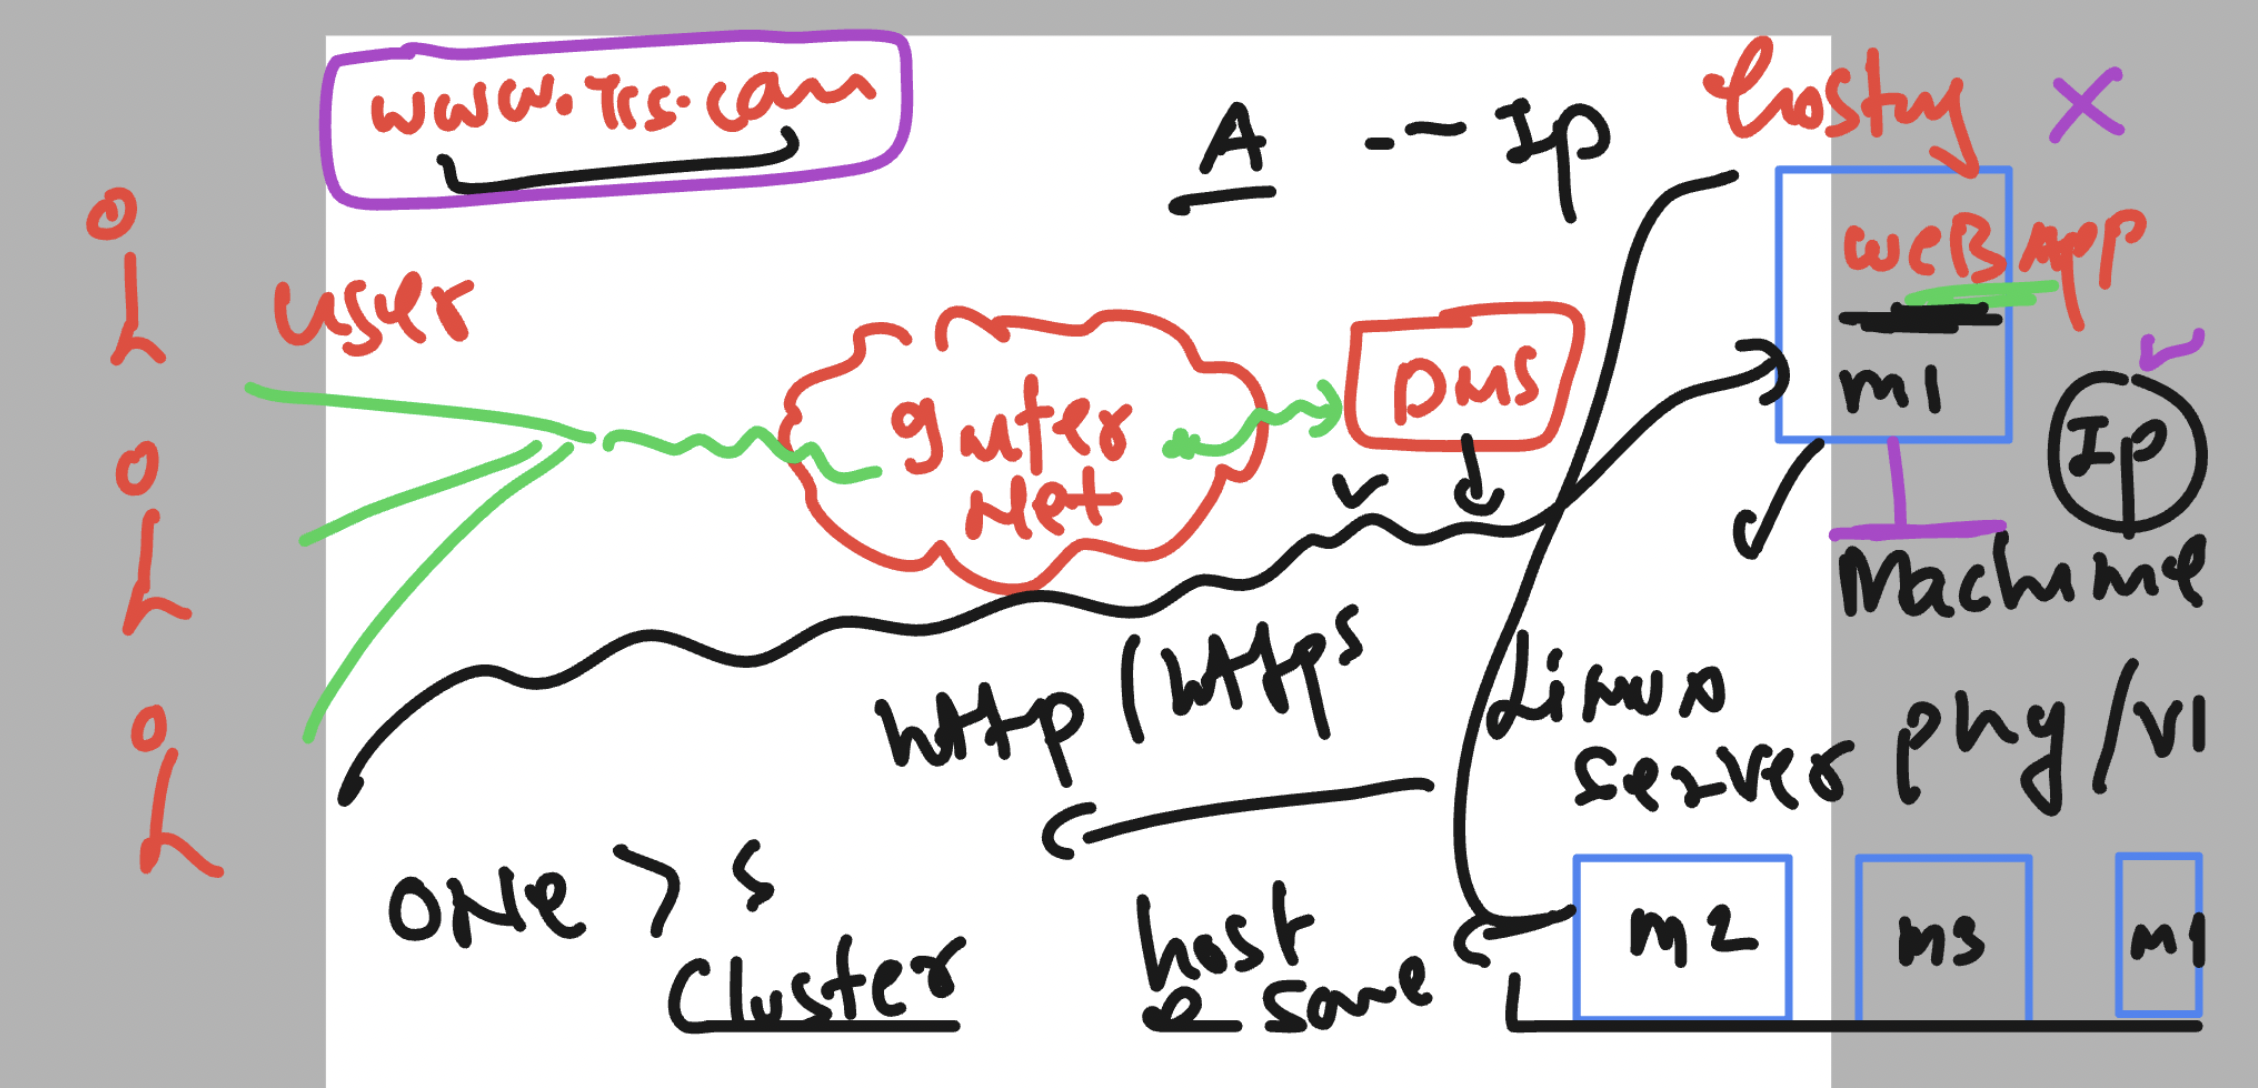 www.Trs.com
A --- Ip
hosting X
user
web App
m1
Inter
Net
DNS
Ip
Machine
http / https
Linux
server
phy / VI
One > s
Cluster
host
same
m2
m3